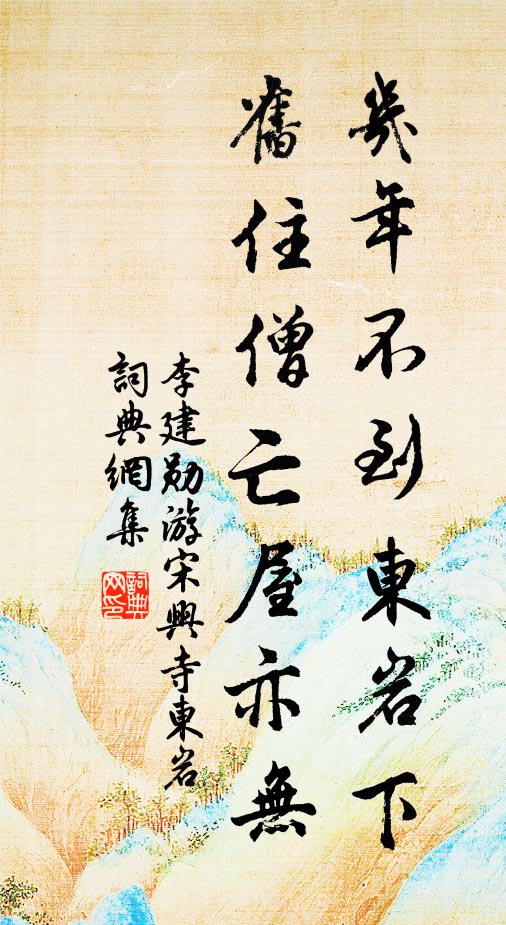 幾年不到東岩下
舊住僧亡屋亦無
李建勛游宋興寺東岩
詞典網集
詞典网印